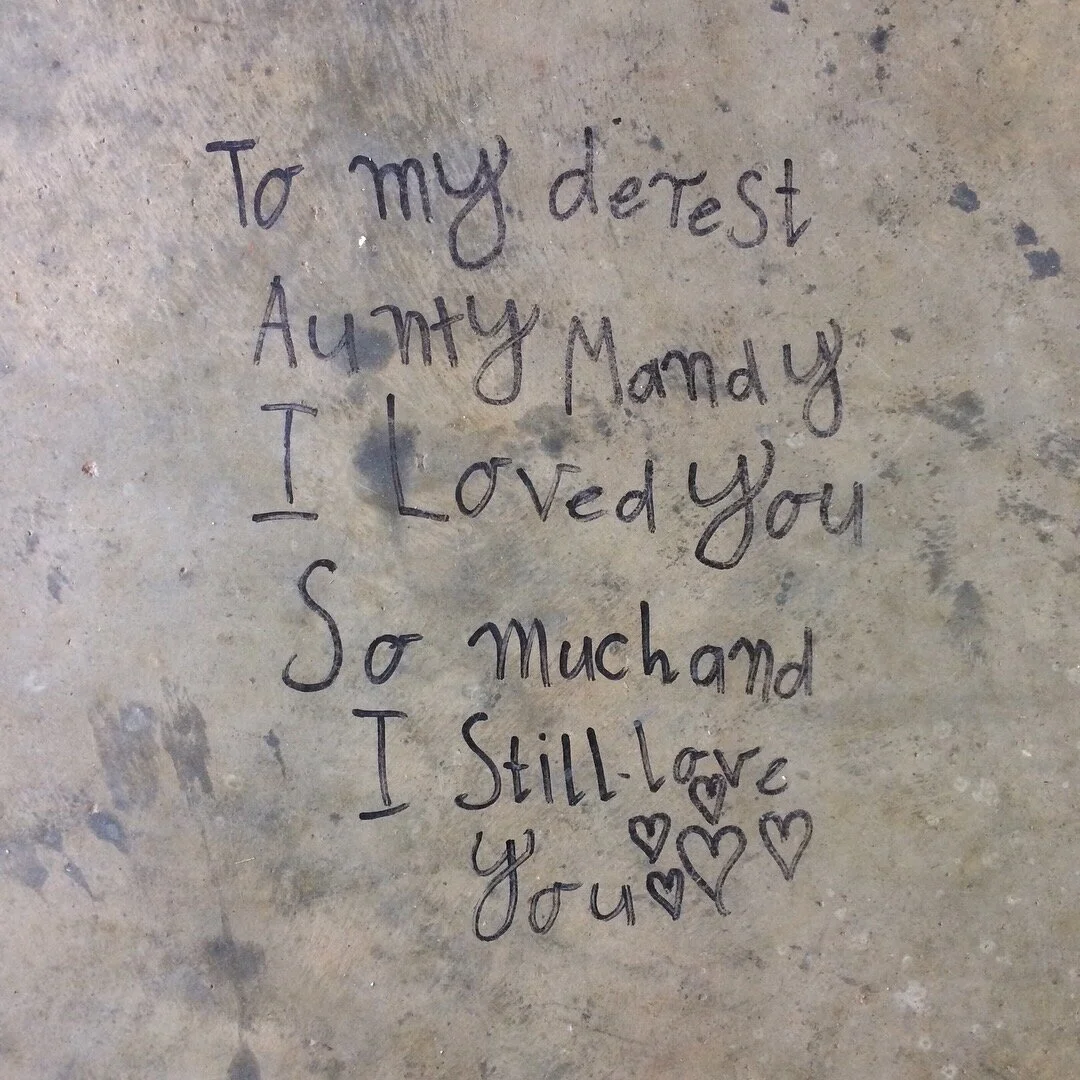 To my derest
Aunty Mandy
I Loved you
So much and
I Still love
you